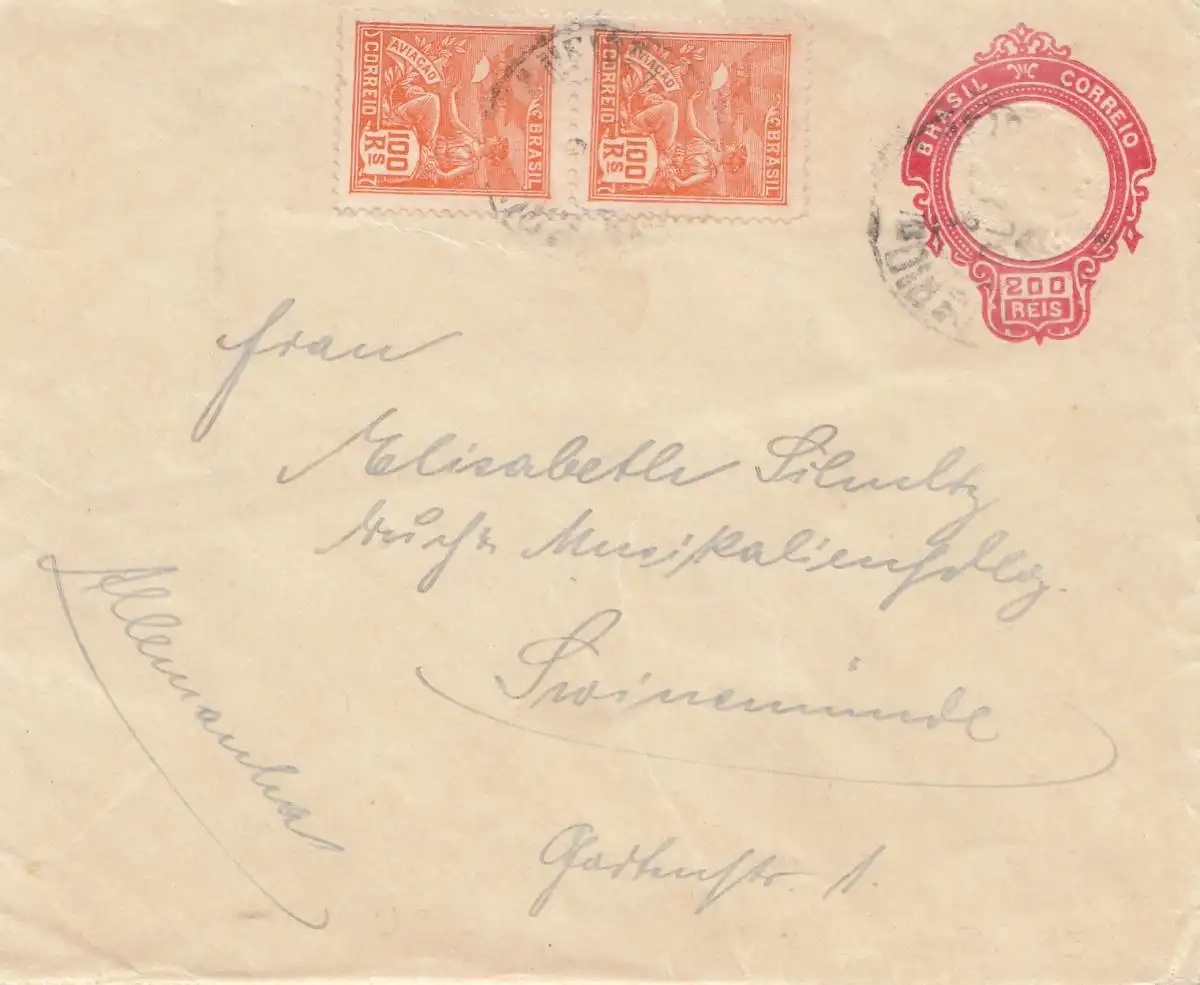 CORREIO BRASIL
AVIACAO
100 Rs
CORREIO BRASIL
AVIACAO
100 Rs
BRASIL CORREIO
200
REIS
Frau
Elisabeth
Musikalienhdlg.
Swinemünde
Gartenstr. 1.
Allemanha